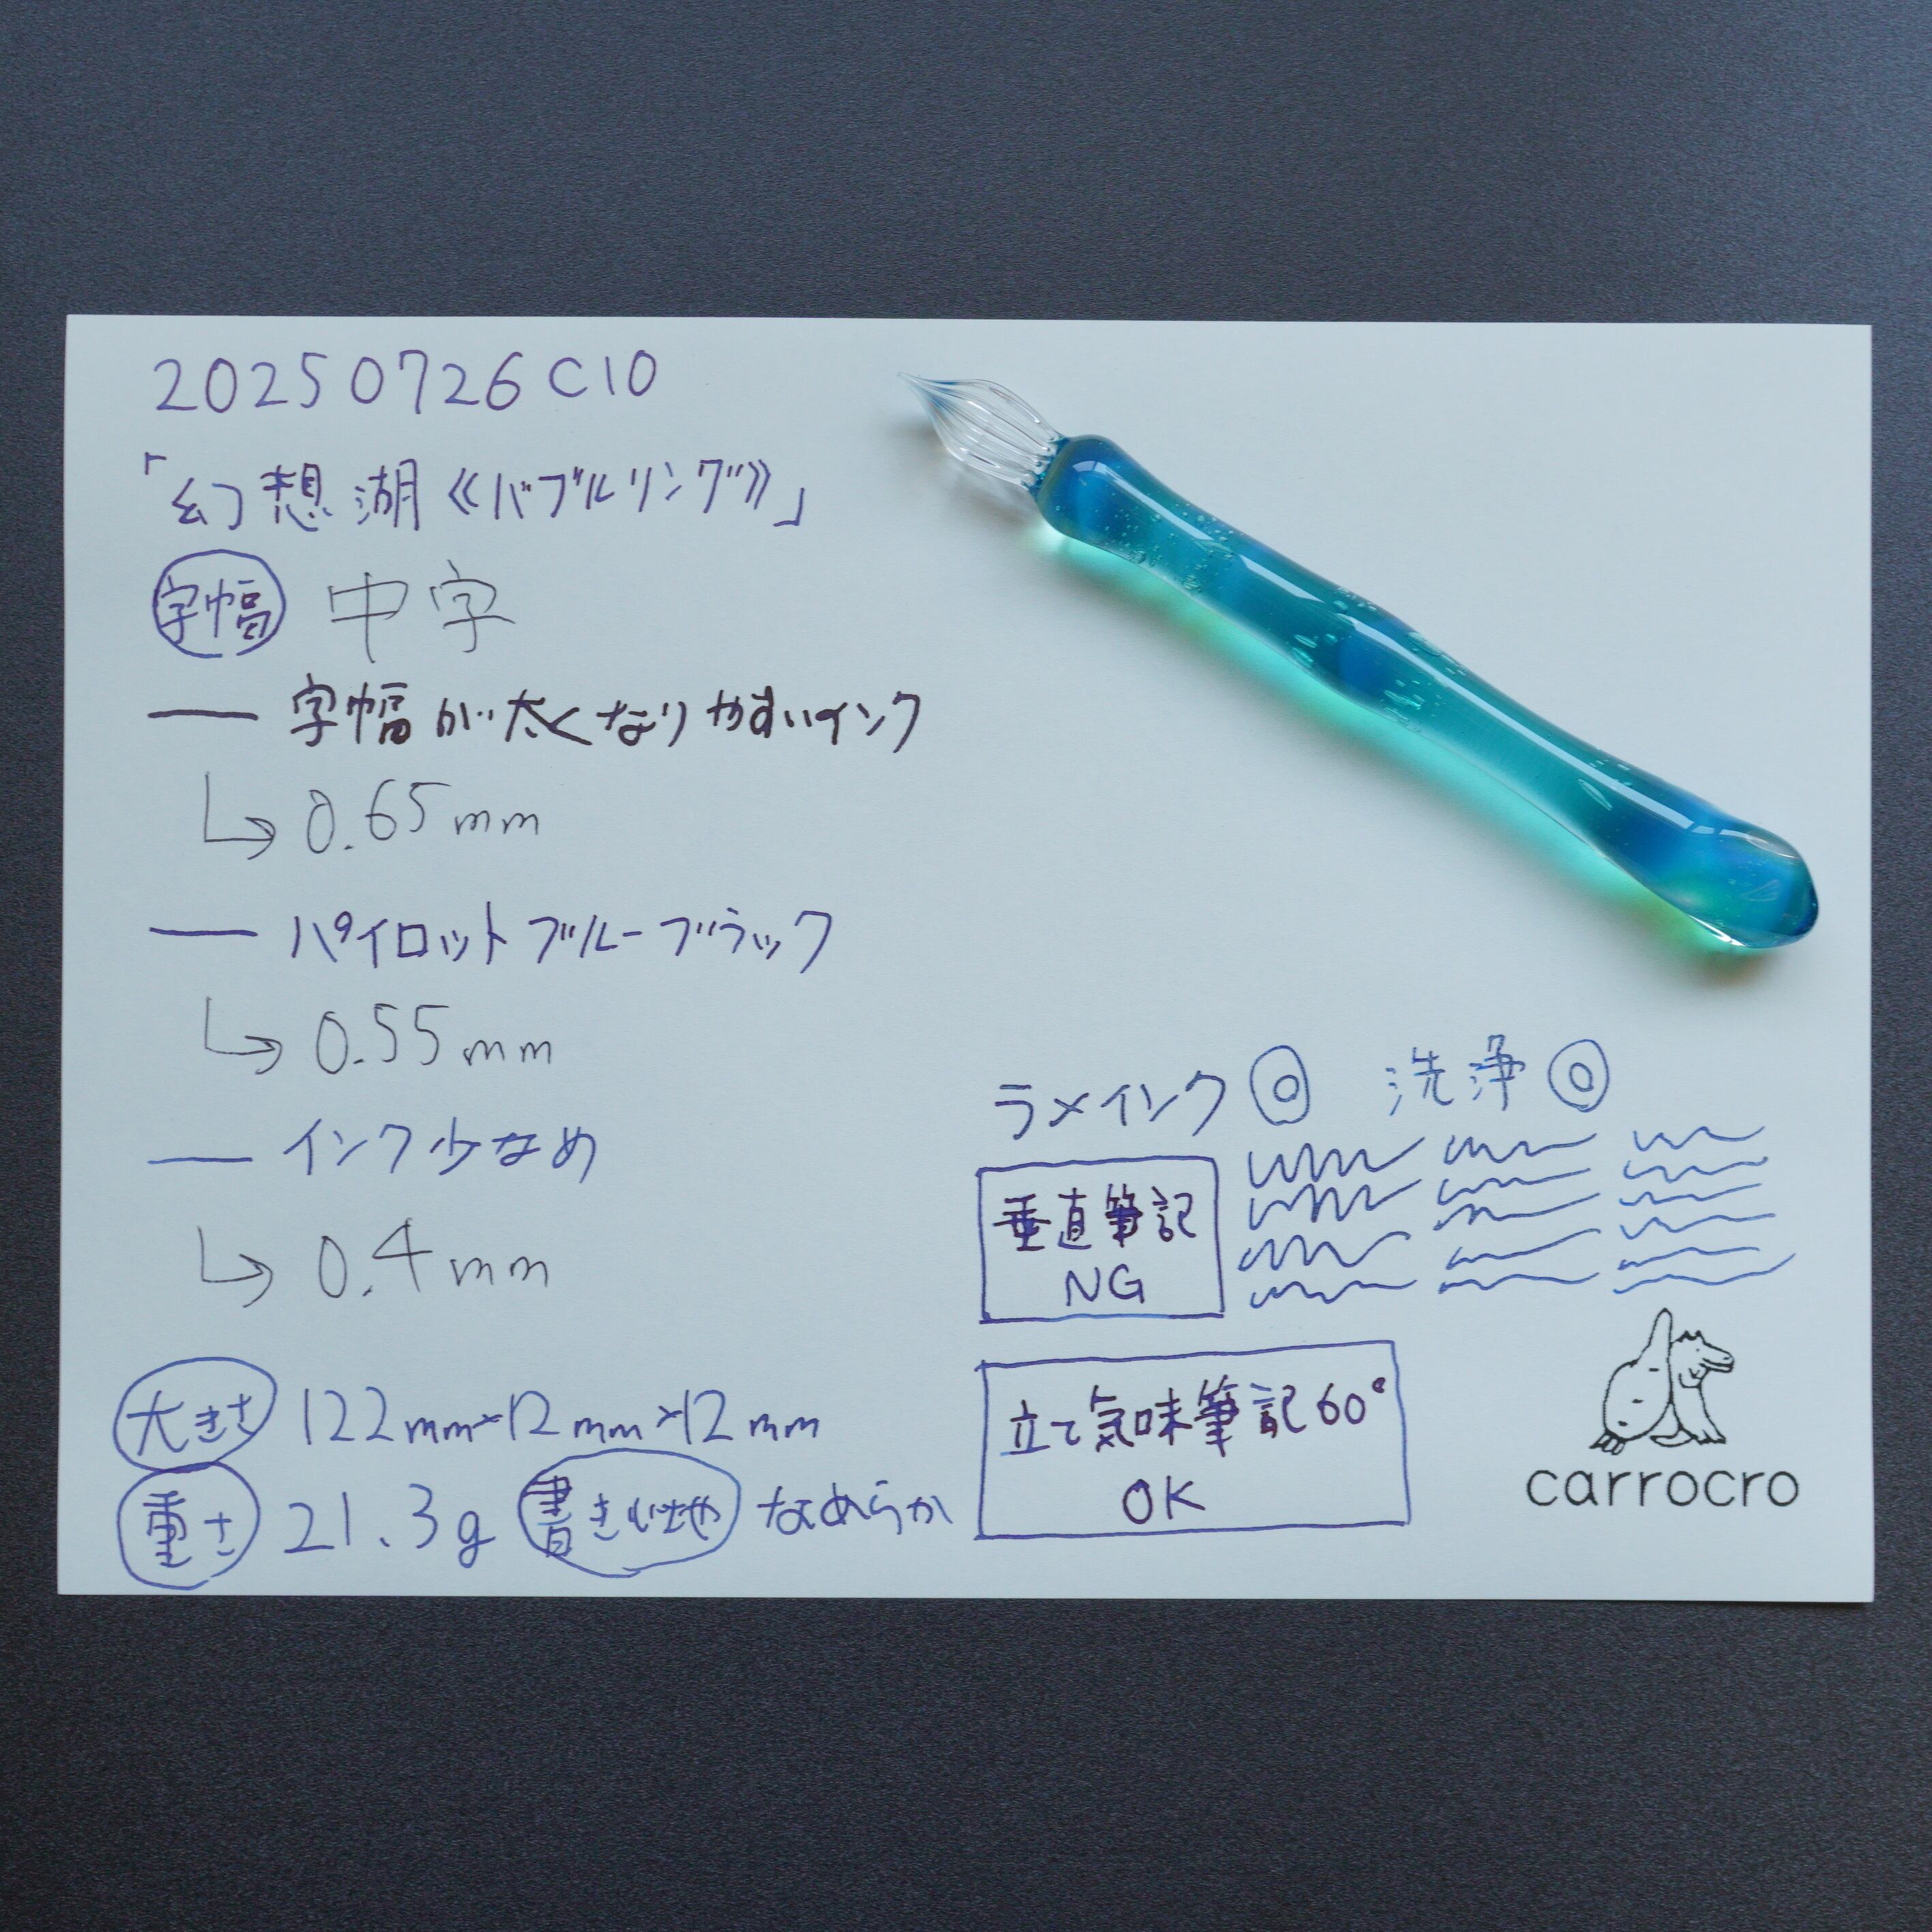 20250726C10
「幻想湖《バブルリング》」
字幅 中字
— 字幅が太くなりやすいインク
↳ 0.65mm
— パイロットブルーブラック
↳ 0.55mm
— インク少なめ
↳ 0.4mm
大きさ 122mm×12mm×12mm
重さ 21.3g 書き心地 なめらか
ラメインク ◎ 洗浄 ◎
垂直筆記
NG
立て気味筆記60°
OK
carrocro